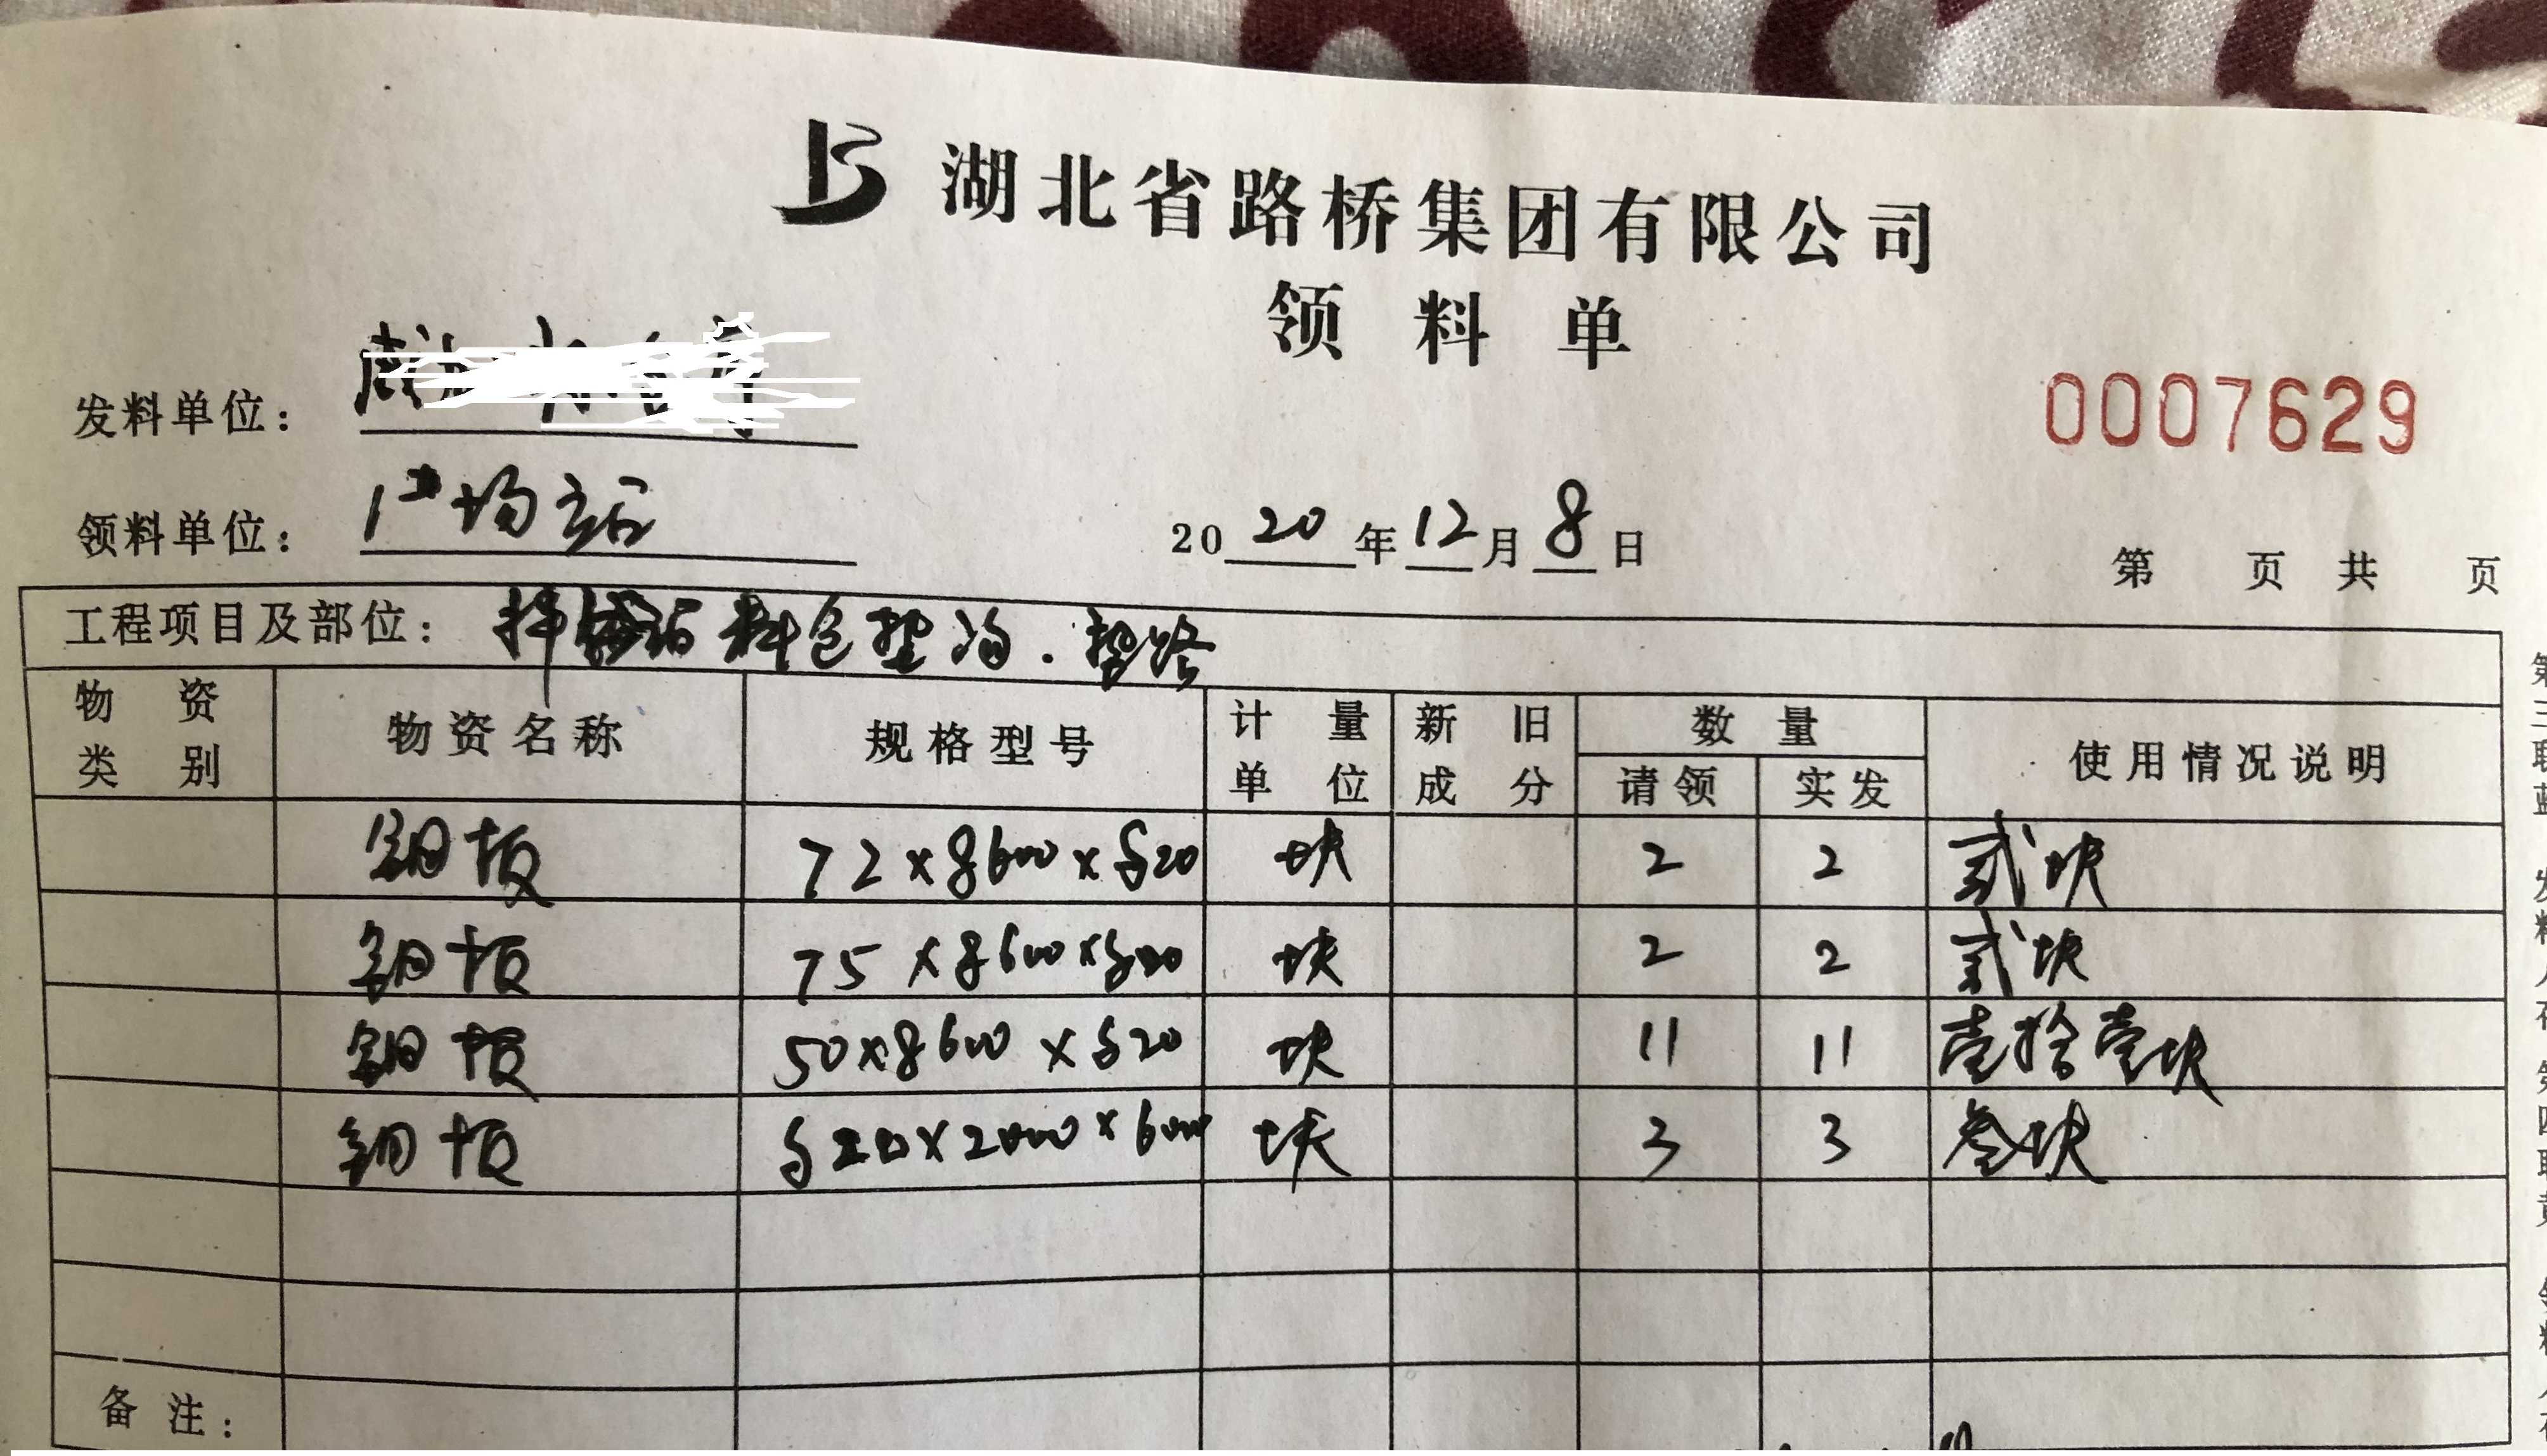 湖北省路桥集团有限公司
领料单
0007629
发料单位：
领料单位：1#场站
2020年12月8日
第 页 共 页
工程项目及部位：拌站料仓垫沟.垫路
物资类别 物资名称 规格型号 计量单位 新旧成分 数量 请领 实发 使用情况说明
钢板 72×8600×δ20 块 2 2 贰块
钢板 75×8600×δ20 块 2 2 贰块
钢板 50×8600×δ20 块 11 11 壹拾壹块
钢板 δ20×2000×6000 块 3 3 叁块
备注：